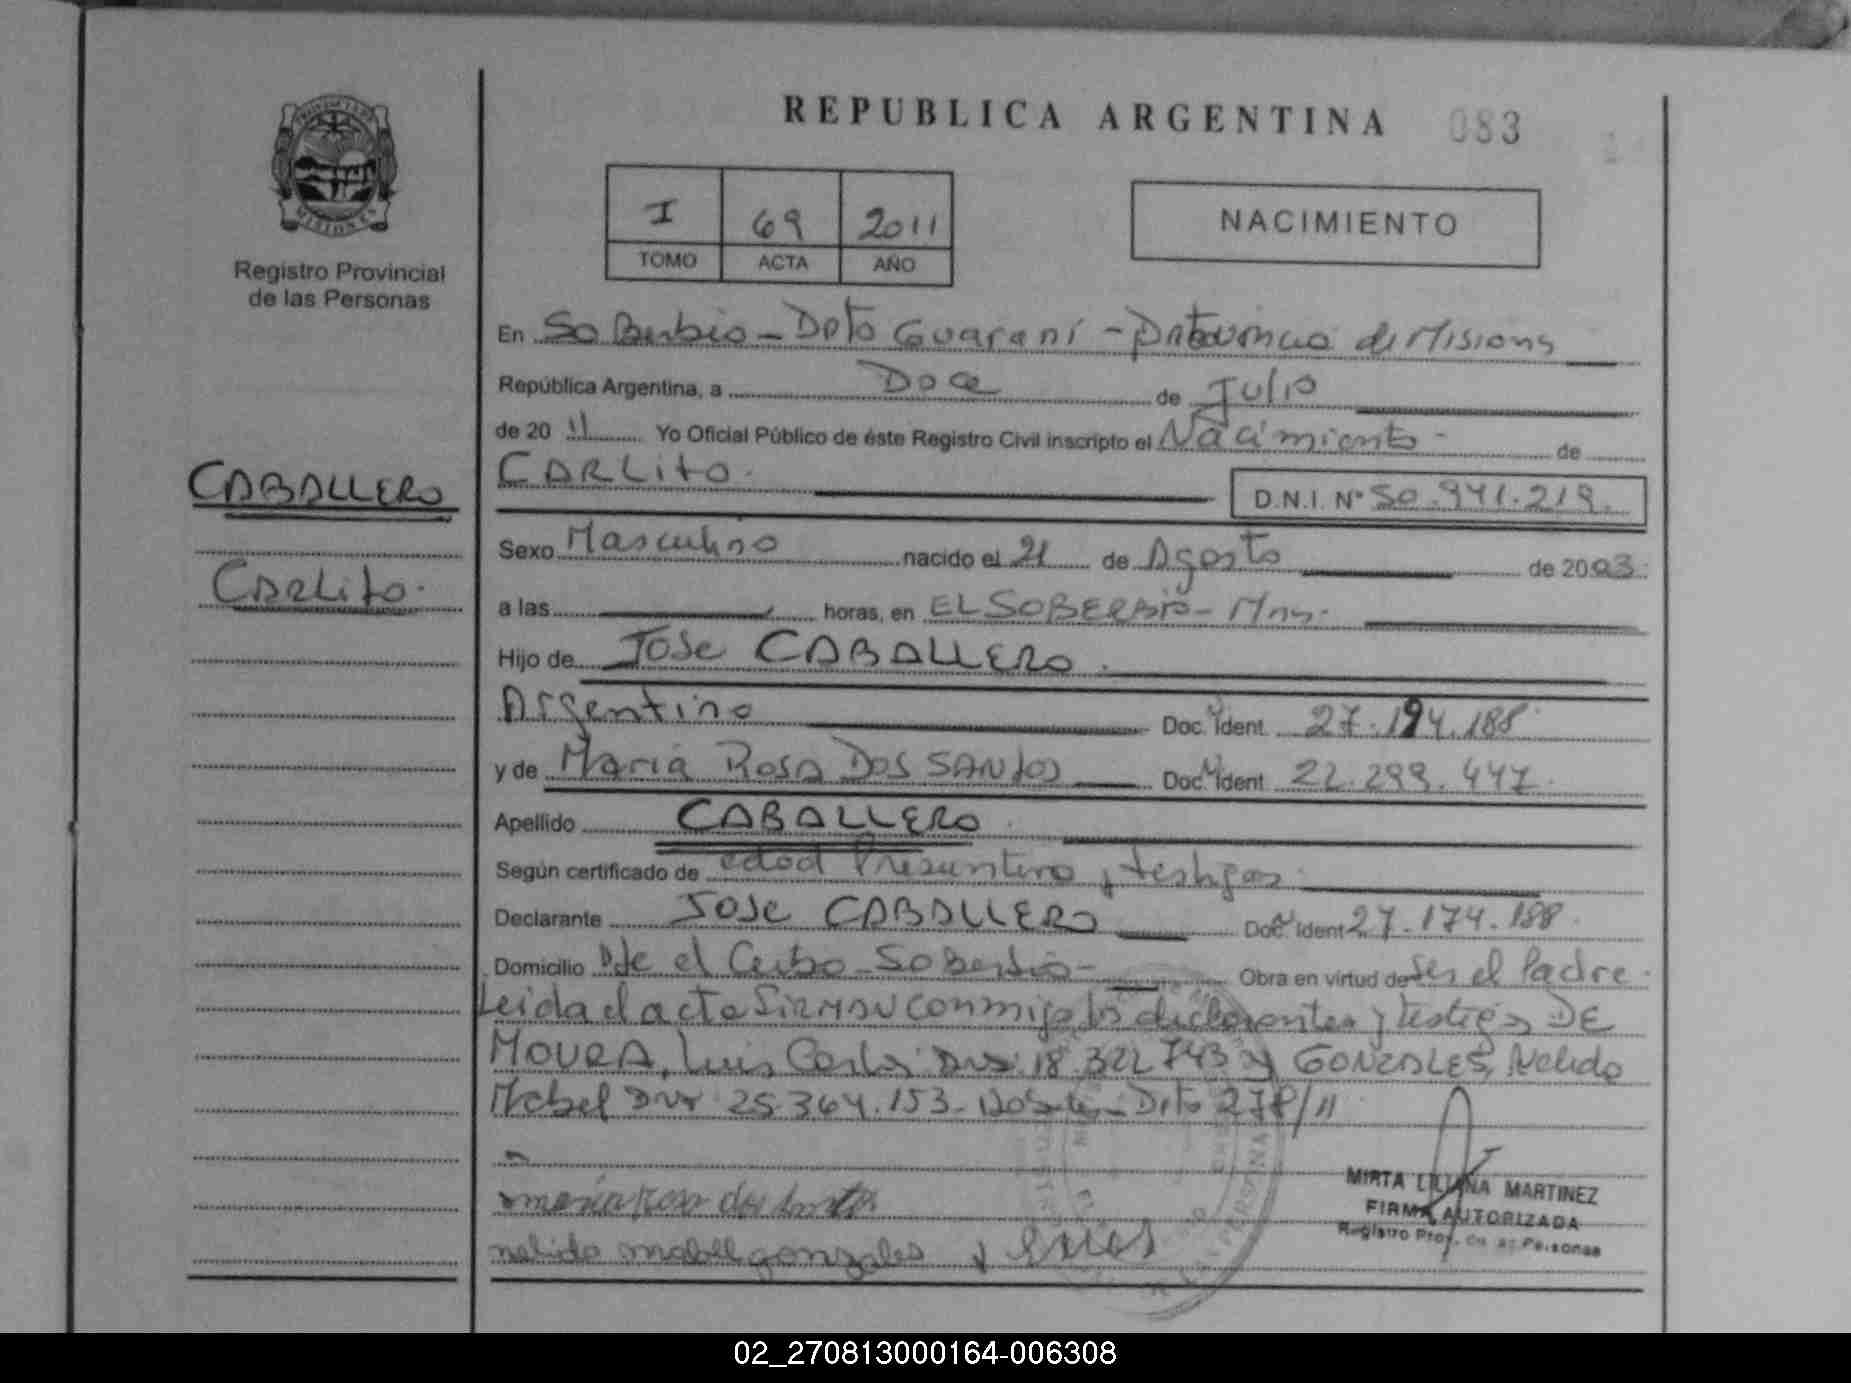 REPUBLICA ARGENTINA 083
MISIONES
Registro Provincial
de las Personas
I 69 2011
TOMO ACTA AÑO
NACIMIENTO
En SoBerbio - Dpto Guaraní - Provincia de Misions
República Argentina, a Doce de Julio
de 20 11 Yo Oficial Público de éste Registro Civil inscripto el Nacimiento - de
CABALLERO
CARLito.
D.N.I. Nº 50.941.219.
Sexo Masculino nacido el 21 de Agosto de 2003
CARLito.
a las horas, en EL SOBERBio - Mns.
Hijo de José CABALLERO.
Argentino Doc. Ident. 27.194.188
y de María Rosa Dos SANtos Doc. Ident. 22.299.447.
Apellido CABALLERO
Según certificado de edad Presuntiva y testigos
Declarante José CABALLERO Doc. Ident 27.174.188.
Domicilio Soberbio - Obra en virtud de ser el Padre.
Leida el acta firman conmigo los declarantes y testigos DE
MOURA, Luis Carlos DNI 18.322.743 y GONZALES, Nelida
Mabel DNI 25.364.153 - Dto 278/11
maria rosa dos santos
nelida mabel gonzales
MIRTA LILIANA MARTINEZ
FIRMA AUTORIZADA
Registro Prov. de las Personas
02_270813000164-006308